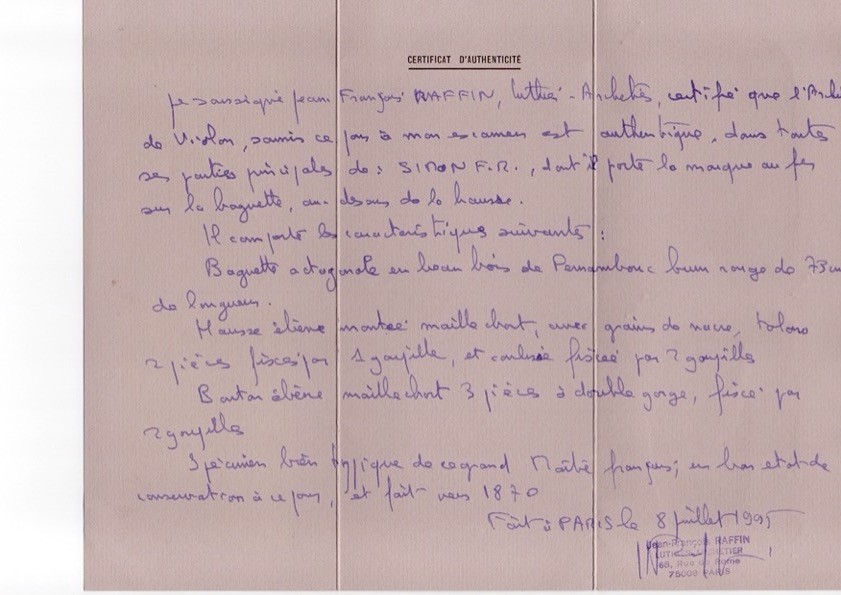 CERTIFICAT D'AUTHENTICITÉ
Je soussigné Jean François RAFFIN, luthier - Archetier, certifie que l'Arch
de Violon, soumis ce jour à mon examen est authentique, dans toutes
ses parties principales de : SIMON F.R., dont il porte la marque au feu
sur la baguette, au-dessus de la hausse.
Il comporte les caractéristiques suivantes :
Baguette octogonale en beau bois de Pernambouc brun rouge de 73 cm
de longueur.
Hausse ébène montée maillechort, avec grains de nacre, talons
2 pièces fixés par 1 goupille, et coulisse fixée par 2 goupilles
Bouton ébène maillechort 3 pièces à double gorge, fixé par
2 goupilles
Spécimen bien typique de ce grand Maître français, en bon etat de
conservation à ce jour, et fait vers 1870
Fait à PARIS le 8 juillet 1995
Jean-François RAFFIN
LUTHIER ARCHETIER
68, Rue de Rome
75008 PARIS